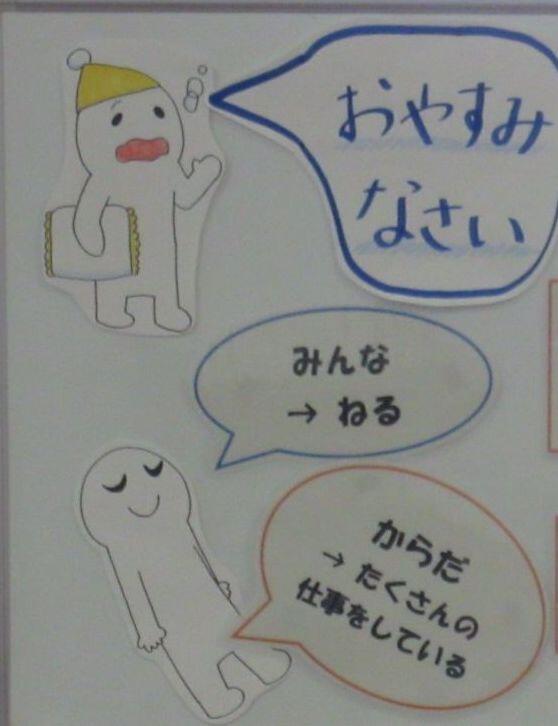 おやすみ
なさい
みんな
→ ねる
からだ
→ たくさんの
仕事をしている